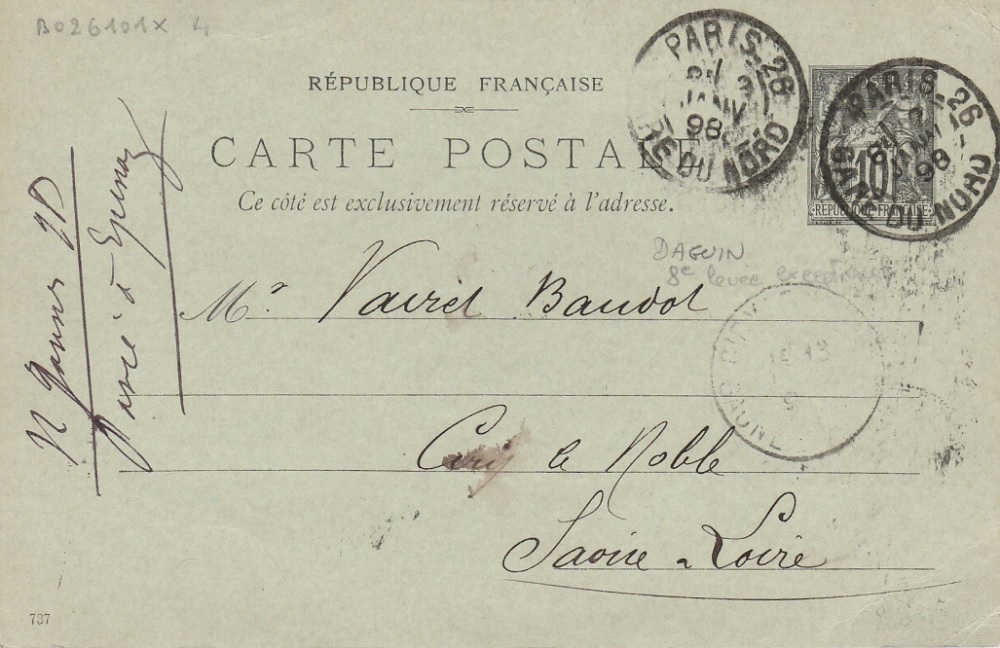 B026101X 4
RÉPUBLIQUE FRANÇAISE
CARTE POSTALE
Ce côté est exclusivement réservé à l'adresse.
PARIS_26
8E
JANV
98
GARE DU NORD
PARIS_26
8E
JANV
98
GARE DU NORD
10
RÉPUBLIQUE FRANÇAISE
DAGUIN
8e levée exceptionnelle
Mr Vairet Baudot
Ciry le Noble
Saone & Loire
à Epinay
737